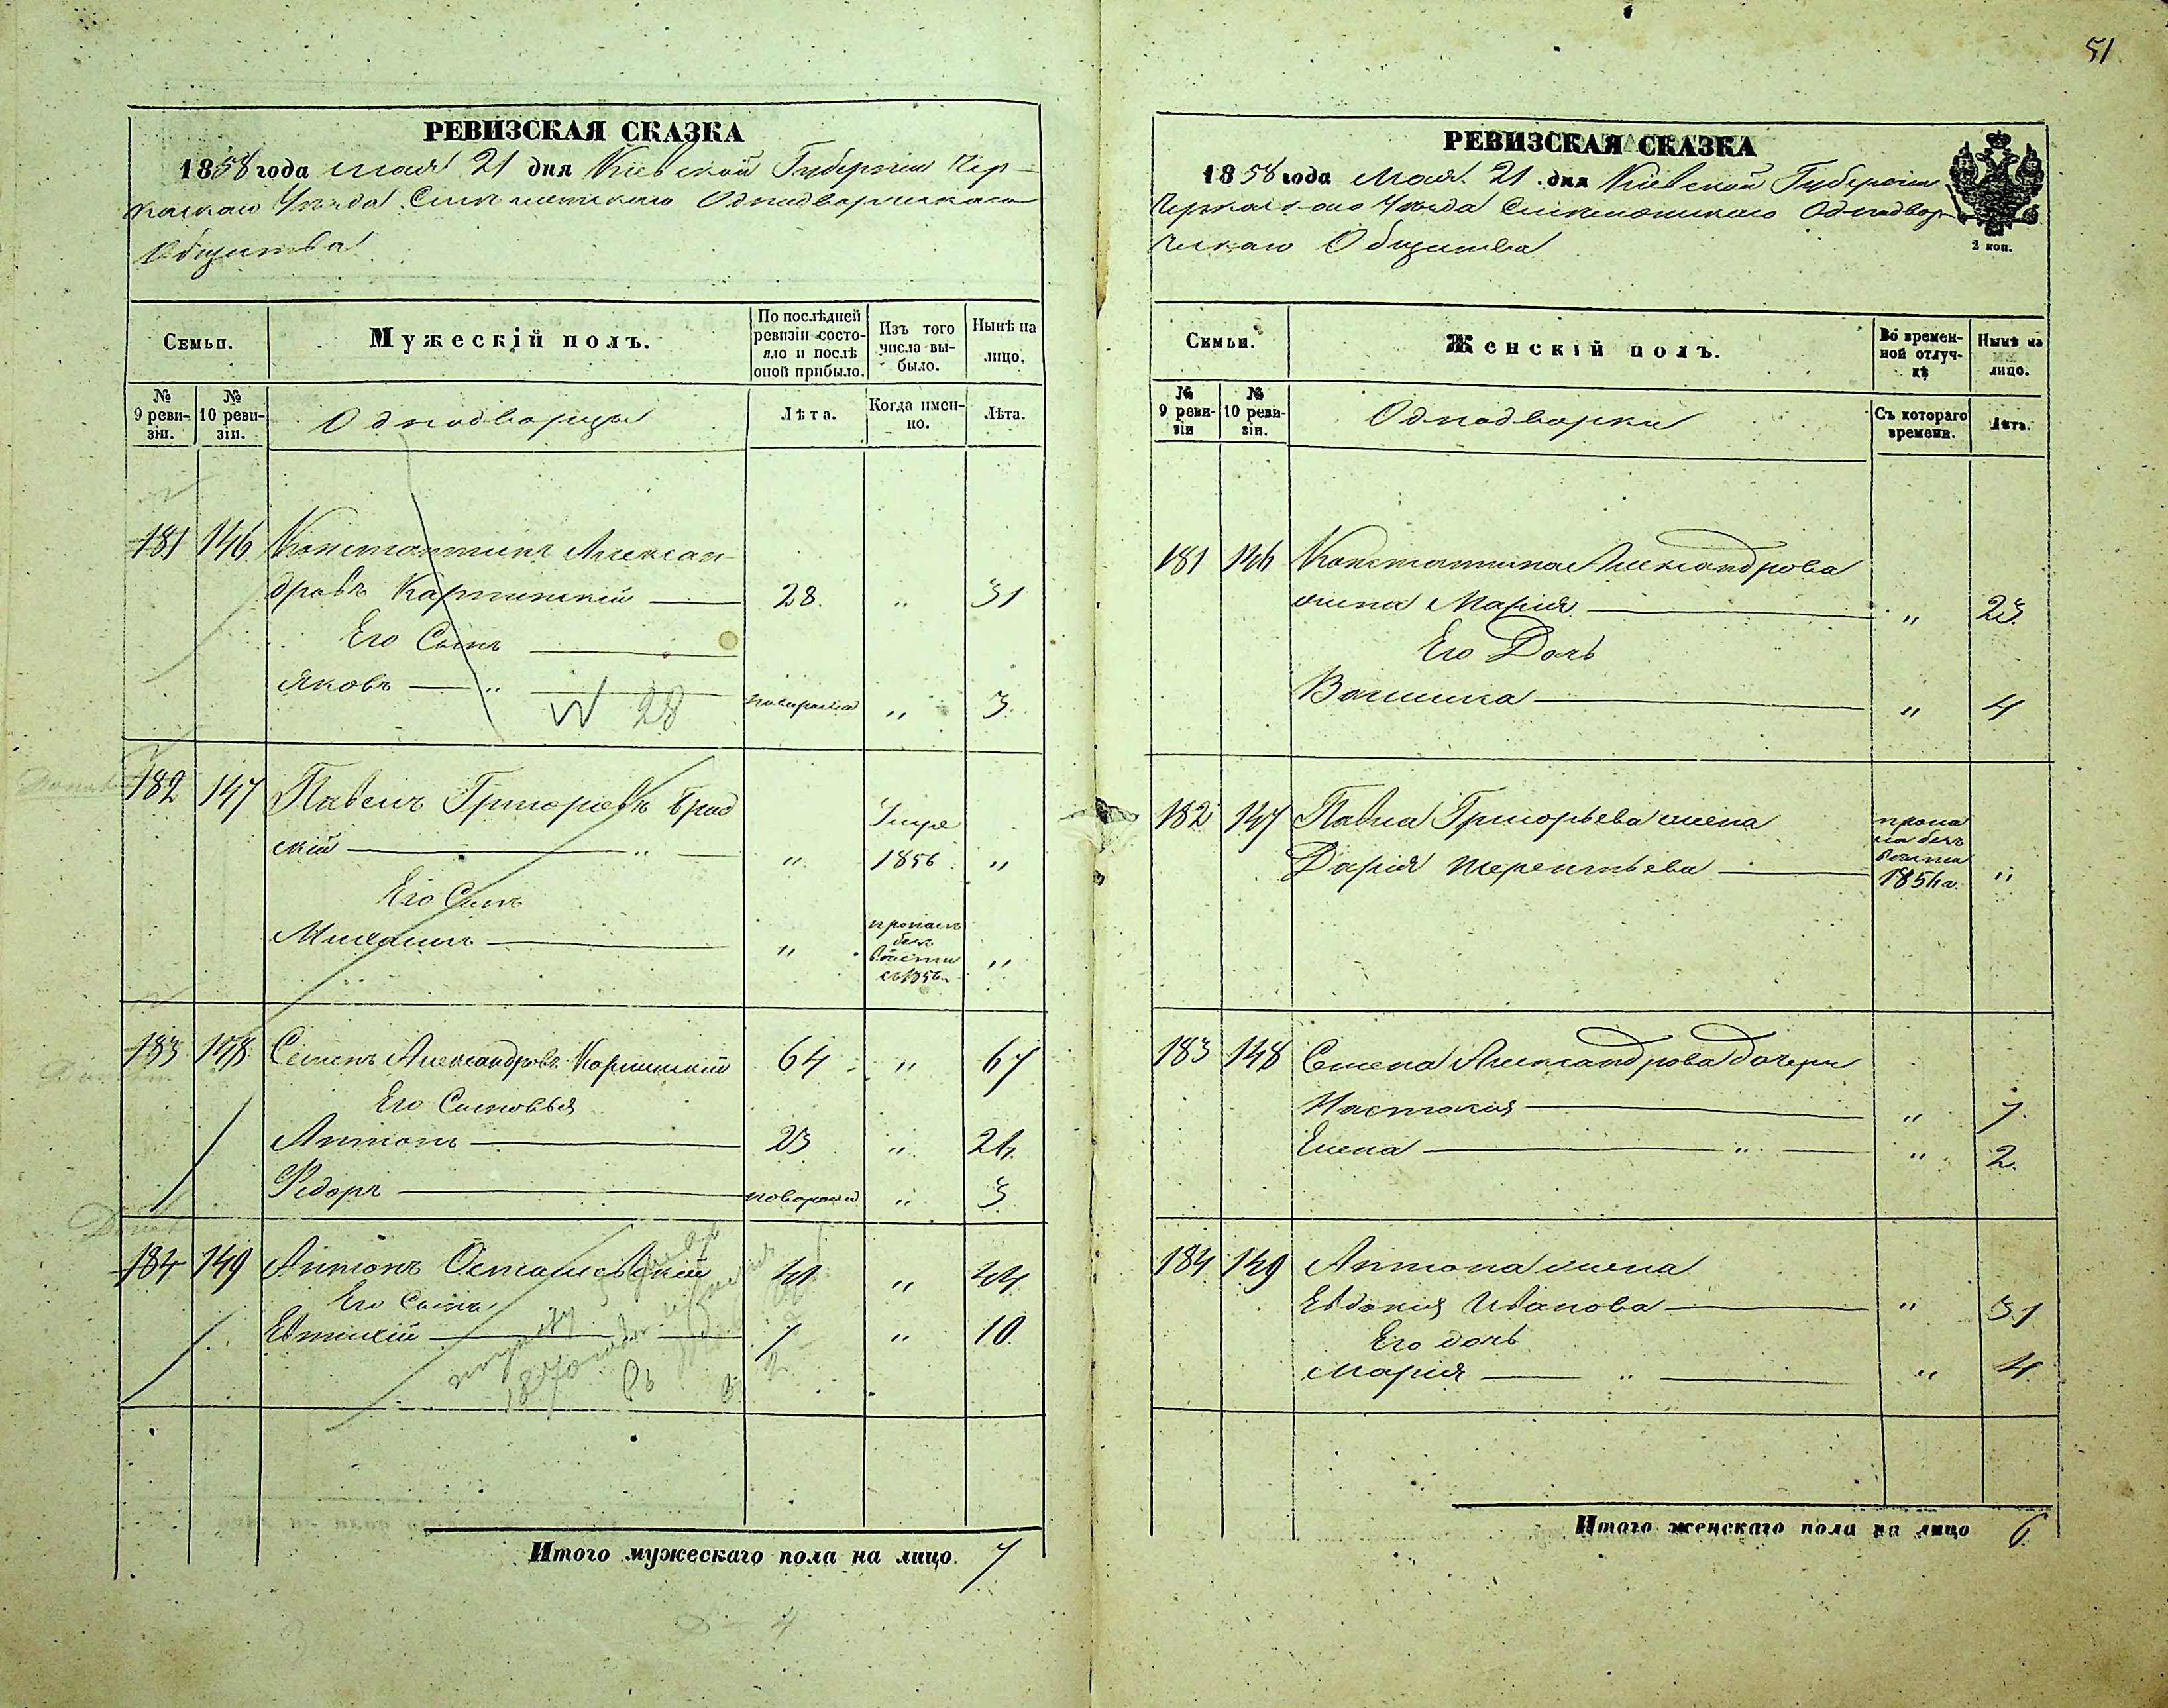 51
РЕВИЗСКАЯ СКАЗКА
1858 года мая 21 дня Кіевской Губерніи Чер-
каскаго Уѣзда Однодворческаго
Общества
Семьи.
Мужескій полъ.
По послѣдней ревизіи состо-яло и послѣ оной прибыло.
Изъ того числа вы-было.
Нынѣ на лицо.
№ 9 реви-зіи.
№ 10 реви-зіи.
Однодворцы
Лѣта.
Когда имен-но.
Лѣта.
181 146 Константинъ Алексан-
дровъ Карпинскій 28. " 31
Его Сынъ
Яковъ " новорожден " 3.
W 28
182 147 Павелъ Григорьевъ Брод
скій " " Умре 1856 "
Его Сынъ
Михаилъ " пропалъ безъ вѣсти съ 1856 "
183 148 Семенъ Александровъ Карпинскій 64 " 67
Его Сыновья
Антонъ 23 " 26.
Федоръ новорожд " 3
184 149 Антонъ Осташевскій 41 " 44
Его Сынъ
Евтихій 7 " 10.
1870
Итого мужескаго пола на лицо. 7
РЕВИЗСКАЯ СКАЗКА
1858 года Мая 21 дня Кіевской Губерніи
Черкаскаго Уѣзда Однодвор-
ческаго Общества
2 коп.
Семьи.
Женскій полъ.
Во времен-ной отлуч-кѣ
Нынѣ на лицо.
№ 9 реви-зіи
№ 10 реви-зіи.
Однодворки
Съ котораго времени.
Лѣта.
181 146 Константина Александрова
жена Марія " 23.
Его Дочь
" 4
182 147 Павла Григорьева жена
Дарія Терентьева пропа ла безъ вѣсти 1856 г. "
183 148 Семена Александрова дочери
Настасия " 7.
Елена " " 2.
184 149 Антона жена
Евдокия Иванова " 31
Его дочь
Марія " " 4.
Итого женскаго пола на лицо 6.